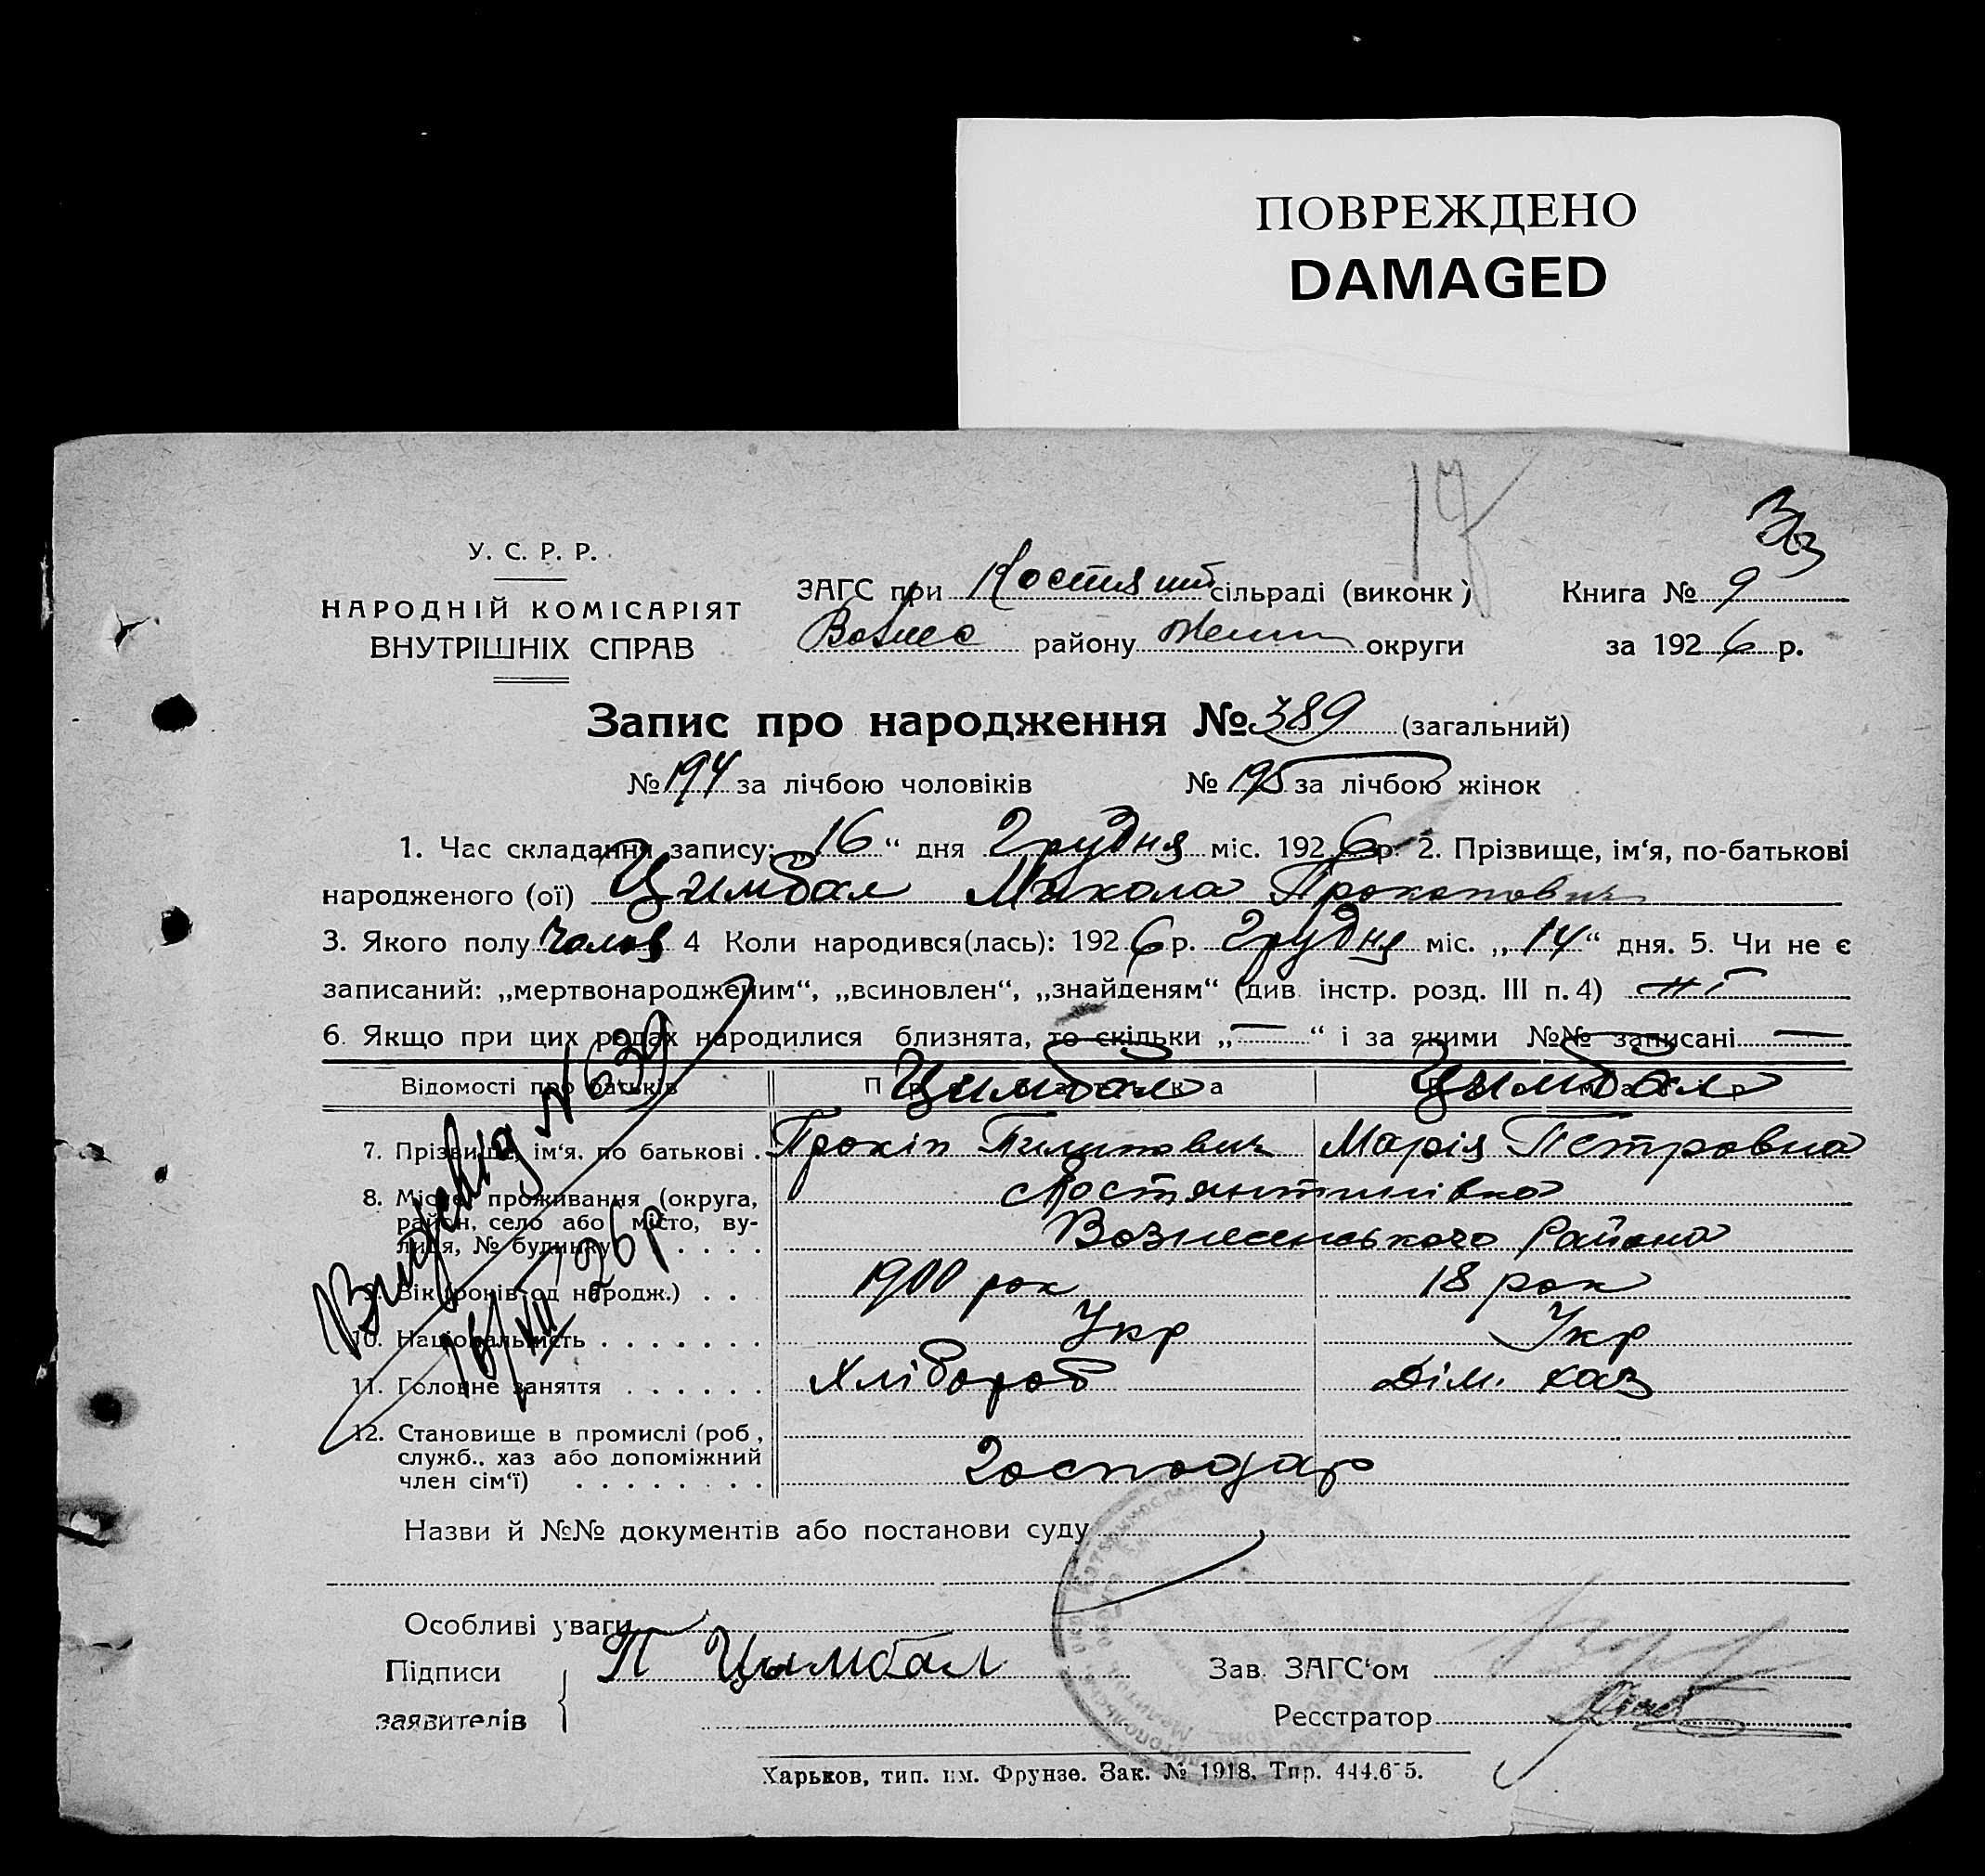 ПОВРЕЖДЕНО
DAMAGED
17
У. С. Р. Р.
НАРОДНІЙ КОМІСАРІЯТ
ВНУТРІШНІХ СПРАВ
ЗАГС при сільраді (виконк)
Вознес району округи
Книга № 9
за 1926 р.
Запис про народження № 389 (загальний)
№ 194 за лічбою чоловіків № 195 за лічбою жінок
1. Час складання запису: 16 “ дня Грудня міс. 1926 р. 2. Прізвище, ім‘я, по-батькові
народженого (ої) Цимбал Микола Прокопович
3. Якого полу чолов 4 Коли народився(лась): 1926 р. Грудня міс. „14“ дня. 5. Чи не є
записаний: „мертвонародженим“, „всиновлен“, „знайденям“ (див. інстр. розд. III п. 4) ні
6. Якщо при цих родах народилися близнята, то скільки „—“ і за якими №№ записані —
Відомості про батьків Цимбал Цимбал
7. Прізвище, ім‘я, по батькові . Прокіп Пилипович Марія Петровна
8. Місце проживання (округа, Костянтинівка
район, село або місто, ву-
лиця, № будинку . . . . Вознесенського Района
9. Вік (років од народж.) . . 1900 рок 18 рок
10. Національність . . . . . . . Укр Укр
11. Головне заняття . . . . . . Хлібороб Дім. хаз
12. Становище в промислі (роб.,
служб., хаз або допоміжний
член сім‘ї) . . . . . . . . Господар
№ 639
16/XII 26 р
Назви й №№ документів або постанови суду
Особливі уваги
Підписи
заявителів
П Цымбал
Зав. ЗАГС‘ом
Реєстратор
Харьков, тип. им. Фрунзе. Зак. № 1918.